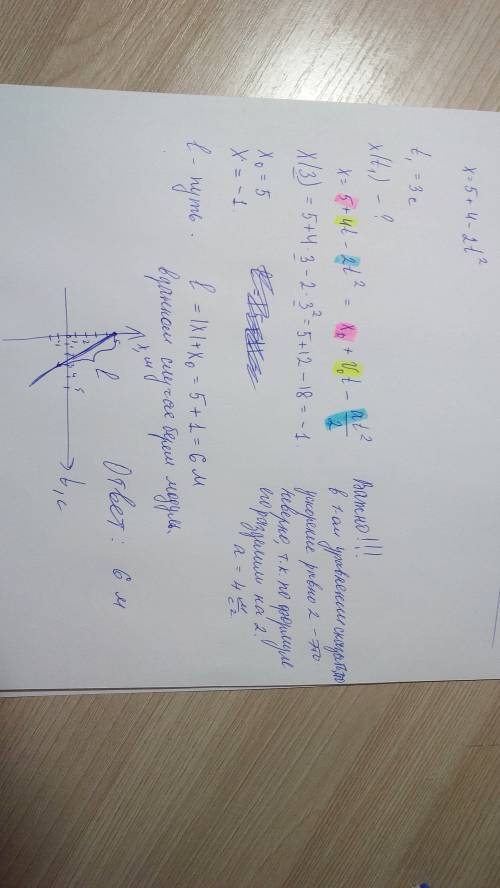 x = 5 + 4 - 2t²
t₁ = 3с
x(t₁) - ?
x = 5 + 4t - 2t² = x₀ + v₀t - at²/2
x(3) = 5 + 4 · 3 - 2 · 3² = 5 + 12 - 18 = -1.
x₀ = 5
x = -1.
l - путь.
l = |x| + x₀ = 5 + 1 = 6 м
в данном случае берем модуль.
Важно!!!
в этом уравнении
ускорение равно 2 - это
неверно, т.к по формуле
его разделили на 2.
a = 4 м/с²
x, м
l
t, с
Ответ: 6 м